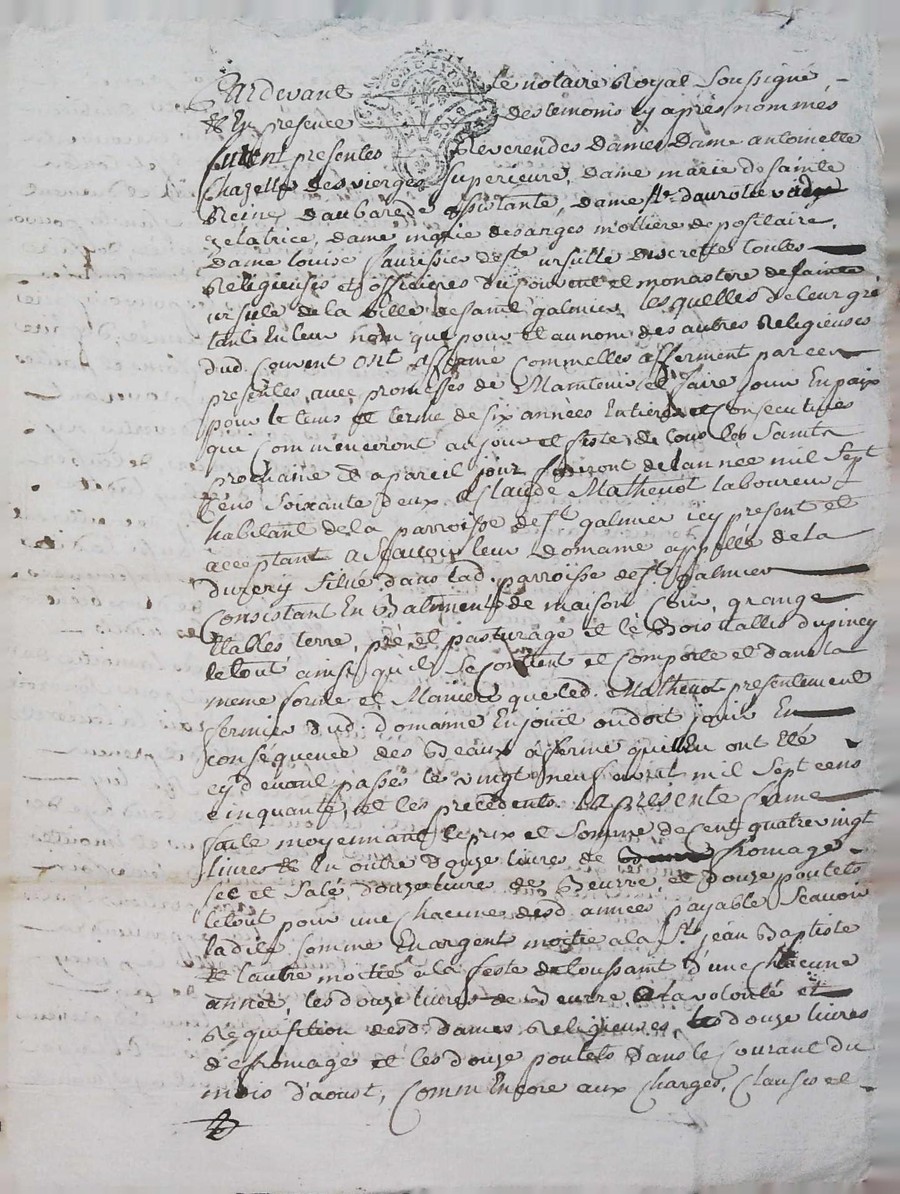 Pardevant le notaire Royal soussigné
& En presence des temoins cy après nommés
furent presentes Reverendes Dames Dame antoinette
Chazelle des vierges superieure, dame marie de sainte
Reine d'aubarede assistante, dame
zelatrice, dame marie des anges mollière depositaire,
dame louise des.te ursulle discrette toutes
Religieuses et officieres du couvent et monastere de sainte
ursule de la ville de saint galmier, lesquelles de leur gré
tant En leur nom que pour et au nom des autres Religieuses
dud. Couvent ont affermé comm'elles afferment par ces
presentes avec promesses de Maintenir et faire jouir En paix
pour le tems et terme de six années Entieres et Consecutives
qui Commenceront au jour et feste de tous les Saints
prochaine & a pareil jour finiront de l'année mil sept
Cens soixante deux, a Claude Mathevot laboureur
habitant de la parroisse de st. galmier icy present et
acceptant a scavoir leur Domaine appellé de la
situé dans lad. parroisse de st. galmier
Consistant En Batiments de maison Cour, grange
Etables terre, pré, et pasturage et le Bois tallis du piney
le tout ainsi qu'il se Contient et Comporte et dans la
meme forme et Maniere que led. Mathevot presentement
fermier dud. domaine En jouit ou doit jouir En
conséquence des Beaux a ferme qui En ont été
cy devant passés le vingt neuf avril mil sept cens
cinquante, et les precedents. La presente ferme
faite moyennant le prix et somme de Cent quatre vingt
livres & En outre douze livres de fromage
sec et salé, douze livres de Beurre, et Douze poulets
le tout pour une chacune desd. années payable Scavoir
ladite somme En argent moitié a la st. jean Baptiste
& l'autre moitié a la feste de toussaint d'une chacune
année, les douze livres de Beurre a la volonté et
Requisition desd. dames Religieuses, les douze livres
de fromage et les douze poulets dans le Courant du
mois d'aoust, Comm'Encore aux Charges, Clauses et